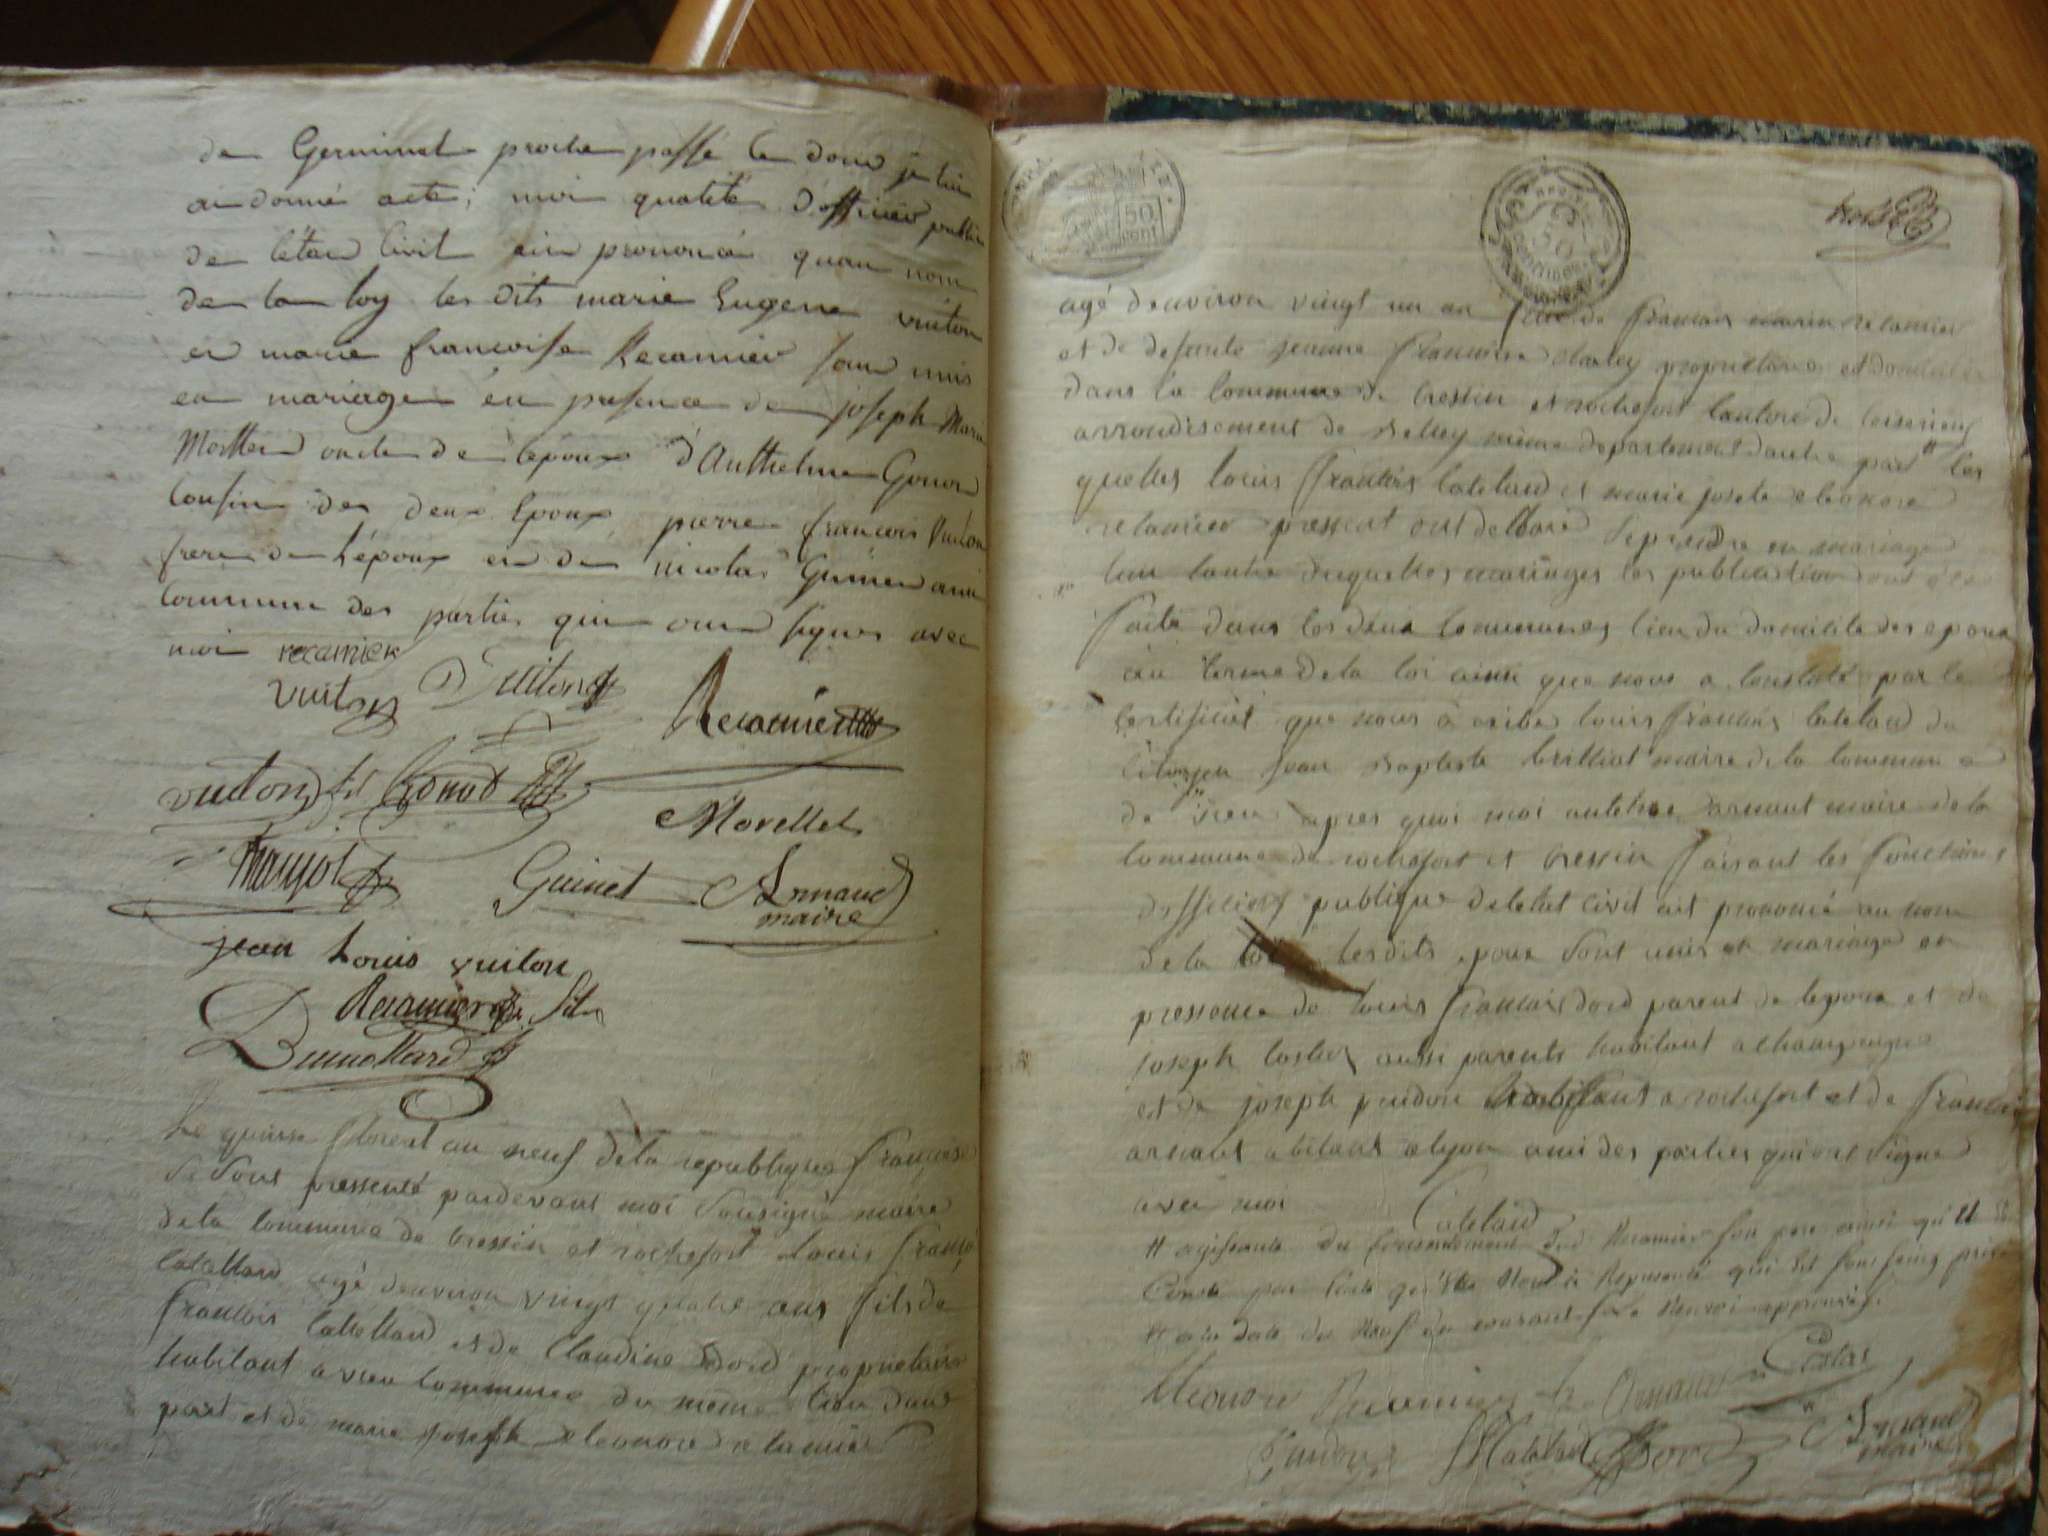 de Germinal proche passé le donc je lui
ai donné acte; moi qualité d'officier public
de l'état Civil ai prononcé quau nom
de la loy les dits marie Eugene vuiton
et marie francoise Recamier sont unis
en mariage en presence de joseph Marie
oncle de l'epoux d'Anthelme Gonod
Cousin des deux Epoux pierre francois Vuiton
frere de L'époux et de nicolas Guinet ami
Commun des parties qui ont signes avec
moi recamier
Vuiton Vuiton Recamier
vuiton fils Gonod
Morellet
Guinet Armand
maire
jean Louis vuiton
Recamier fils
Dumollard
Le quinse floreal an neuf de la republique francaise
se sont pressenté pardevant moi sousigné maire
de la commune de Cressin et rochefort Louis françois
Catelland agé denviron vingt quatre ans fils de
francois Catelland et de Claudine Dord proprietaire
habitant a vieu commune du meme lieu dune
part et de marie joseph eleonore recamier
50
cent
50
trois
agé denviron vingt un an fille de francois marin recamier
et de defunte jeanne francoise proprietaire et domicilié
dans la commune de Cressin et rochefort Canton de Ceiserieux
arrondisement de Belley meme departement dautre part # les
quelles louis francois Catelland et marie josete eleonore
recamier pressent ont delibaré se prendre en mariage
lun lautre duquelles mariages les publication ont été
faite dans les deux communes lieu du domicile des epoux
au terme de la loi ainsi que nous a constaté par le
certificat que nous a exibé louis francois Catelland du
citoyen jean Baptiste brillat maire de la commune
de vieu apres quoi moi antelme armant maire de la
commune de rochefort et Cressin faisant les fonctions
dofficier publique de letat civil ait prononcé au nom
de la loi lesdits epoux sont unis en mariage en
pressence de louis francois dord parent de lepoux et de
joseph Costaz aussi parents habitant a champagne
et de joseph pendon habitant a rochefort et de francois
armant abitant a lyon ami des parties qui ont signé
avec moi Catelland
# agissante du Consentement dud Recamier son pere ainsi qu'il
Conste par l'acte qu'elle Nous a Representé qui est sous seing privé
# a la date du Neuf du courant Renvoi approuvé.
Eleonore Recamier Armand Costaz
Catelland Dord Armand
maire